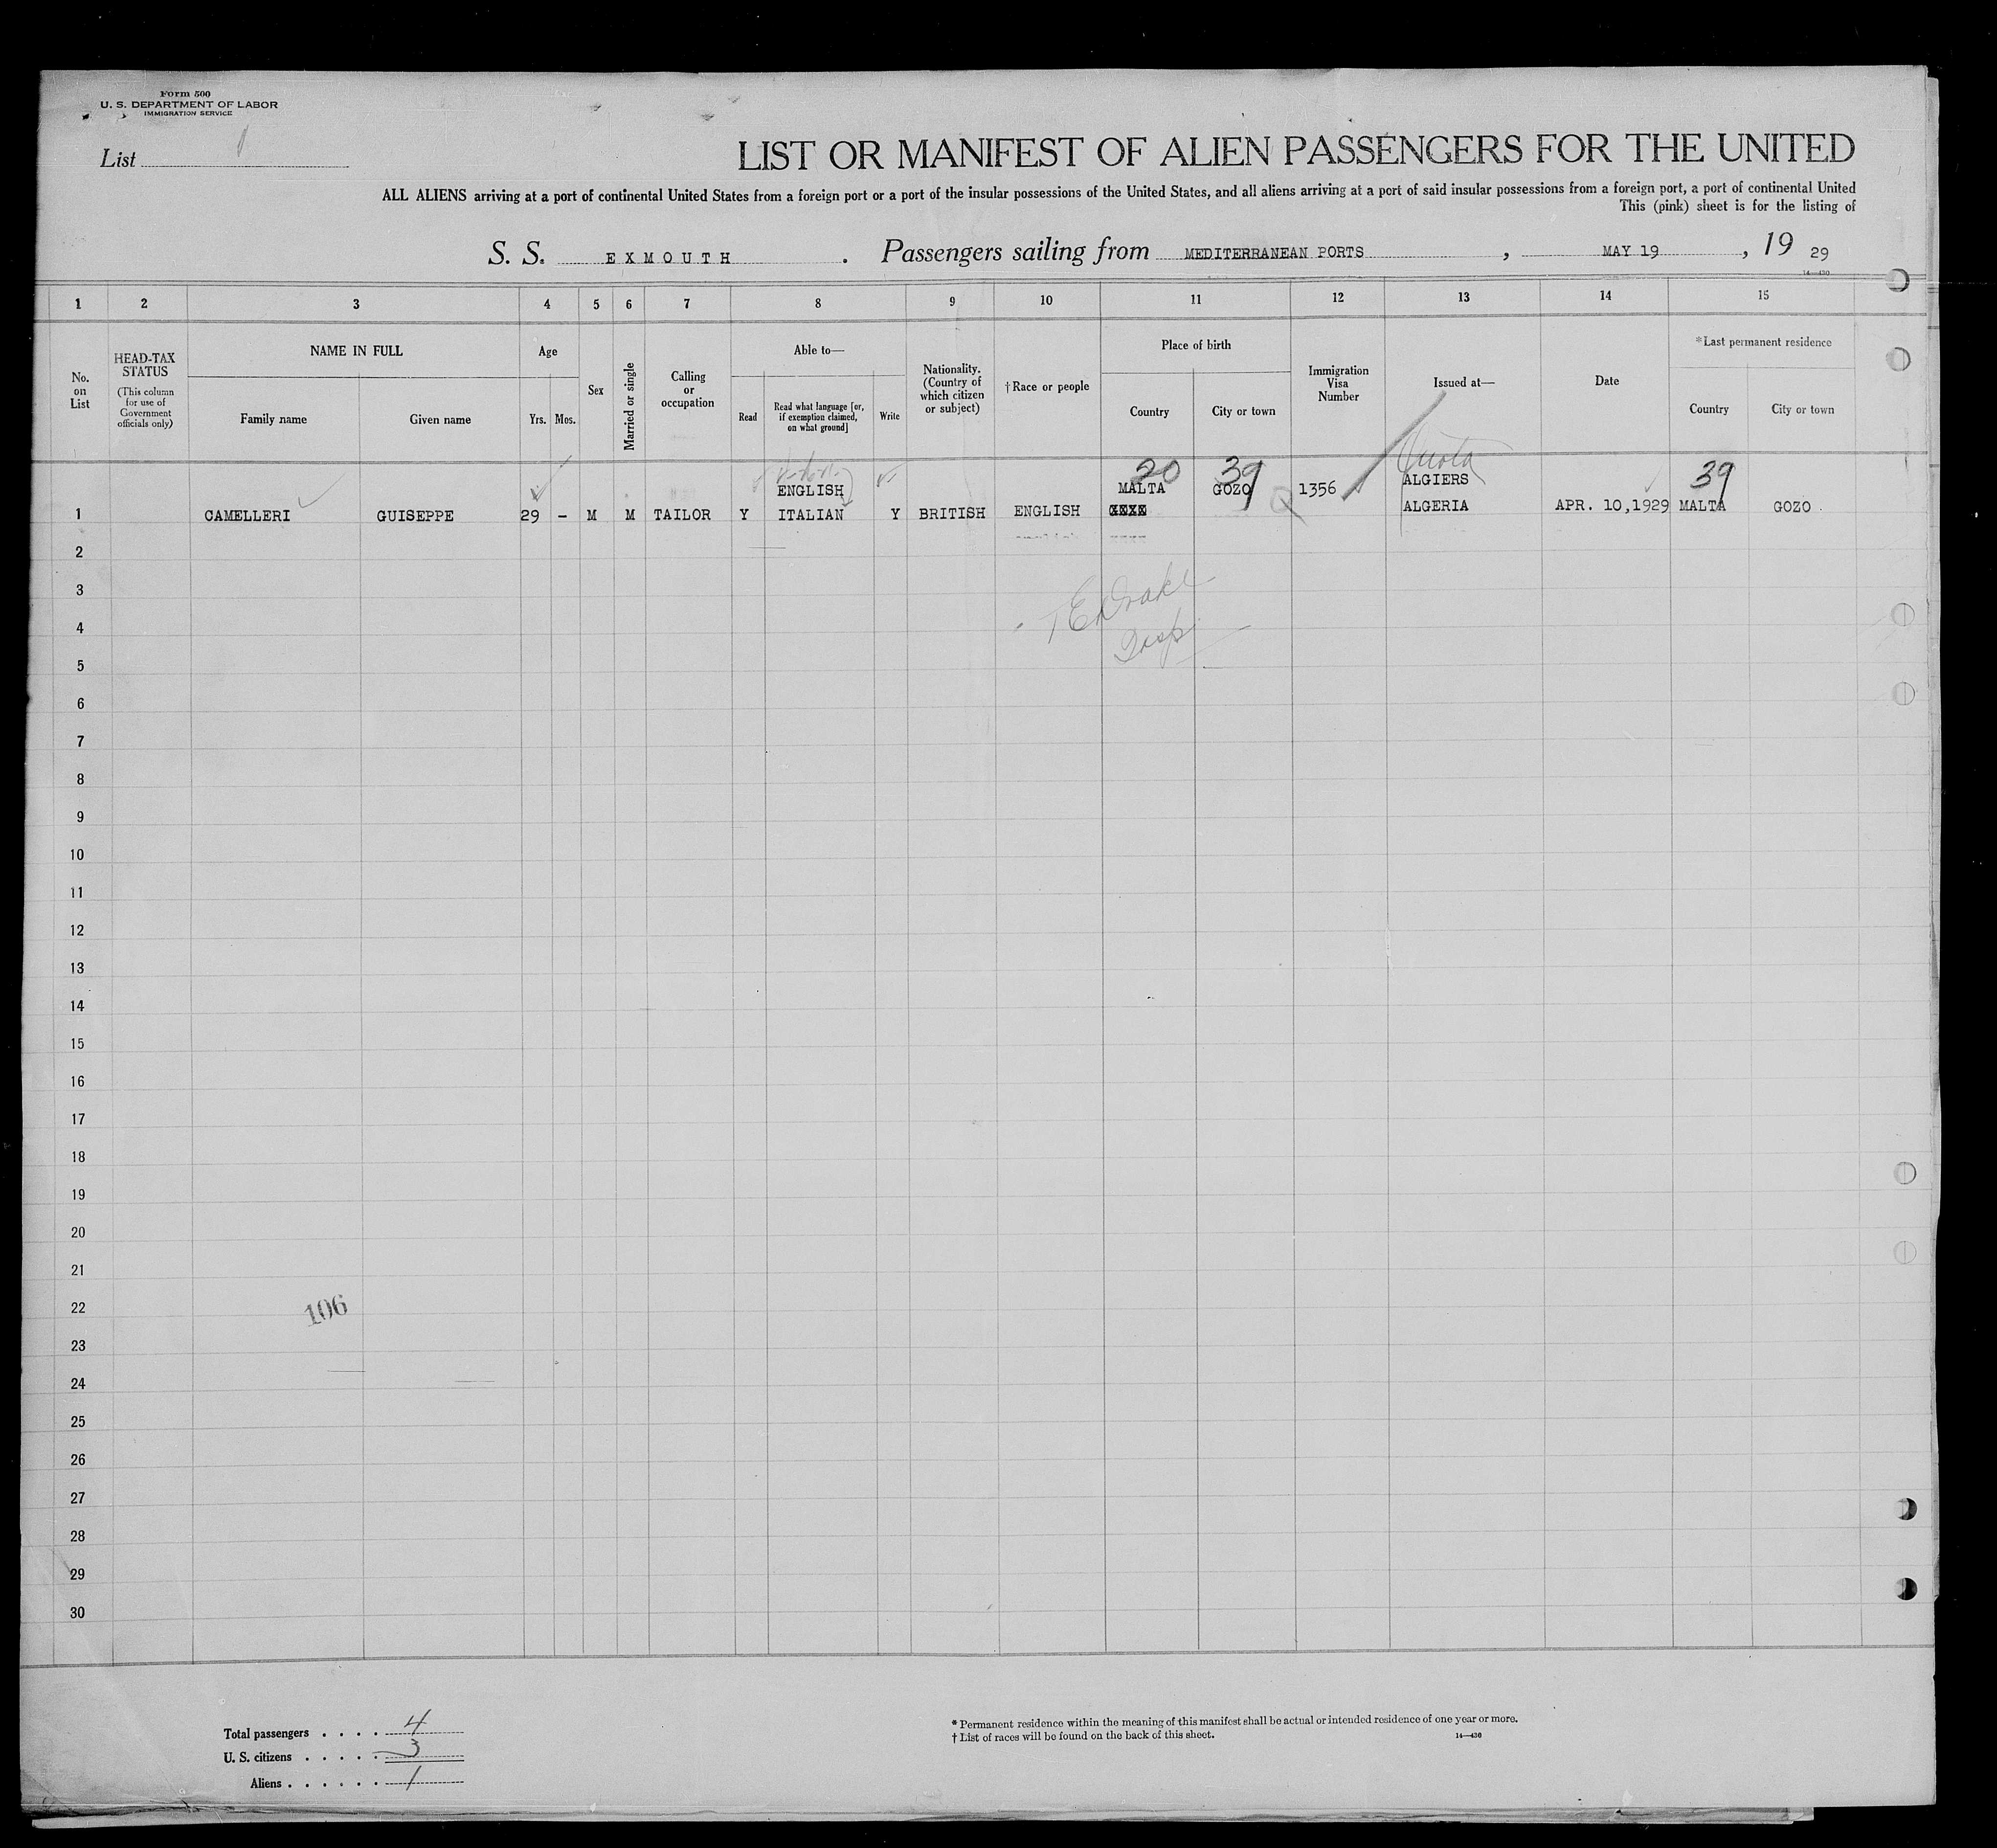 Form 500
U. S. DEPARTMENT OF LABOR
IMMIGRATION SERVICE
List 1
LIST OR MANIFEST OF ALIEN PASSENGERS FOR THE UNITED
ALL ALIENS arriving at a port of continental United States from a foreign port or a port of the insular possessions of the United States, and all aliens arriving at a port of said insular possessions from a foreign port, a port of continental United
This (pink) sheet is for the listing of
S. S. EXMOUTH . Passengers sailing from MEDITERRANEAN PORTS , MAY 19 , 19 29
14—430
1 2 3 4 5 6 7 8 9 10 11 12 13 14 15
No. on List
HEAD-TAX STATUS (This column for use of Government officials only)
NAME IN FULL
Family name
Given name
Age
Yrs. Mos.
Sex
Married or single
Calling or occupation
Able to—
Read
Read what language [or, if exemption claimed, on what ground]
Write
Nationality. (Country of which citizen or subject)
†Race or people
Place of birth
Country
City or town
Immigration Visa Number
Issued at—
Date
*Last permanent residence
Country
City or town
20 39 Quota 39
ENGLISH MALTA GOZO 1356 ALGIERS
1 CAMELLERI GUISEPPE 29 - M M TAILOR Y ITALIAN Y BRITISH ENGLISH XXXX ALGERIA APR. 10,1929 MALTA GOZO
2
3
4
5
6
7
8
9
10
11
12
13
14
15
16
17
18
19
20
21
22
106
23
24
25
26
27
28
29
30
Total passengers . . . . 4
U. S. citizens . . . . . 3
Aliens . . . . . . 1
* Permanent residence within the meaning of this manifest shall be actual or intended residence of one year or more.
† List of races will be found on the back of this sheet.
14—430